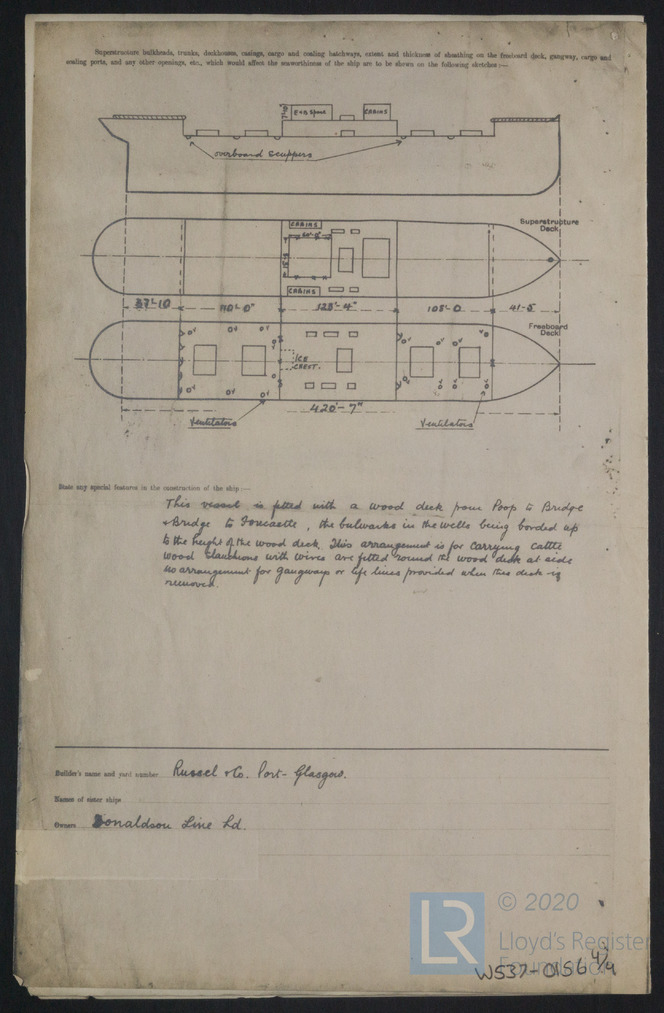 Superstructure bulkheads, trunks, deckhouses, casings, cargo and coaling hatchways, extent and thickness of sheathing on the freeboard deck, gangway, cargo and
coaling ports, and any other openings, etc., which would affect the seaworthiness of the ship are to be shown on the following sketches:—
7'-9
E & B Space
CABINS
overboard scuppers
CABINS
Superstructure
Deck.
CABINS
37'-10
110'-0"
123'-4"
108'-0
41-5
Freeboard
Deck.
ICE
CHEST.
420'-7"
Ventilators
Ventilators
State any special features in the construction of the ship:—
This vessel is fitted with a wood deck from Poop to Bridge
& Bridge to Forecastle, the bulwarks in the wells being borded up
to the height of the wood deck. This arrangement is for carrying cattle
wood stanchions with wires are fitted round the wood deck at side
No arrangement for gangways or life lines provided when this deck is
removed.
Builder's name and yard number Russel & Co. Port-Glasgow.
Names of sister ships
Owners Donaldson Line Ld.
LR
© 2020
Lloyd's Register
Foundation
W537-0156 4/4